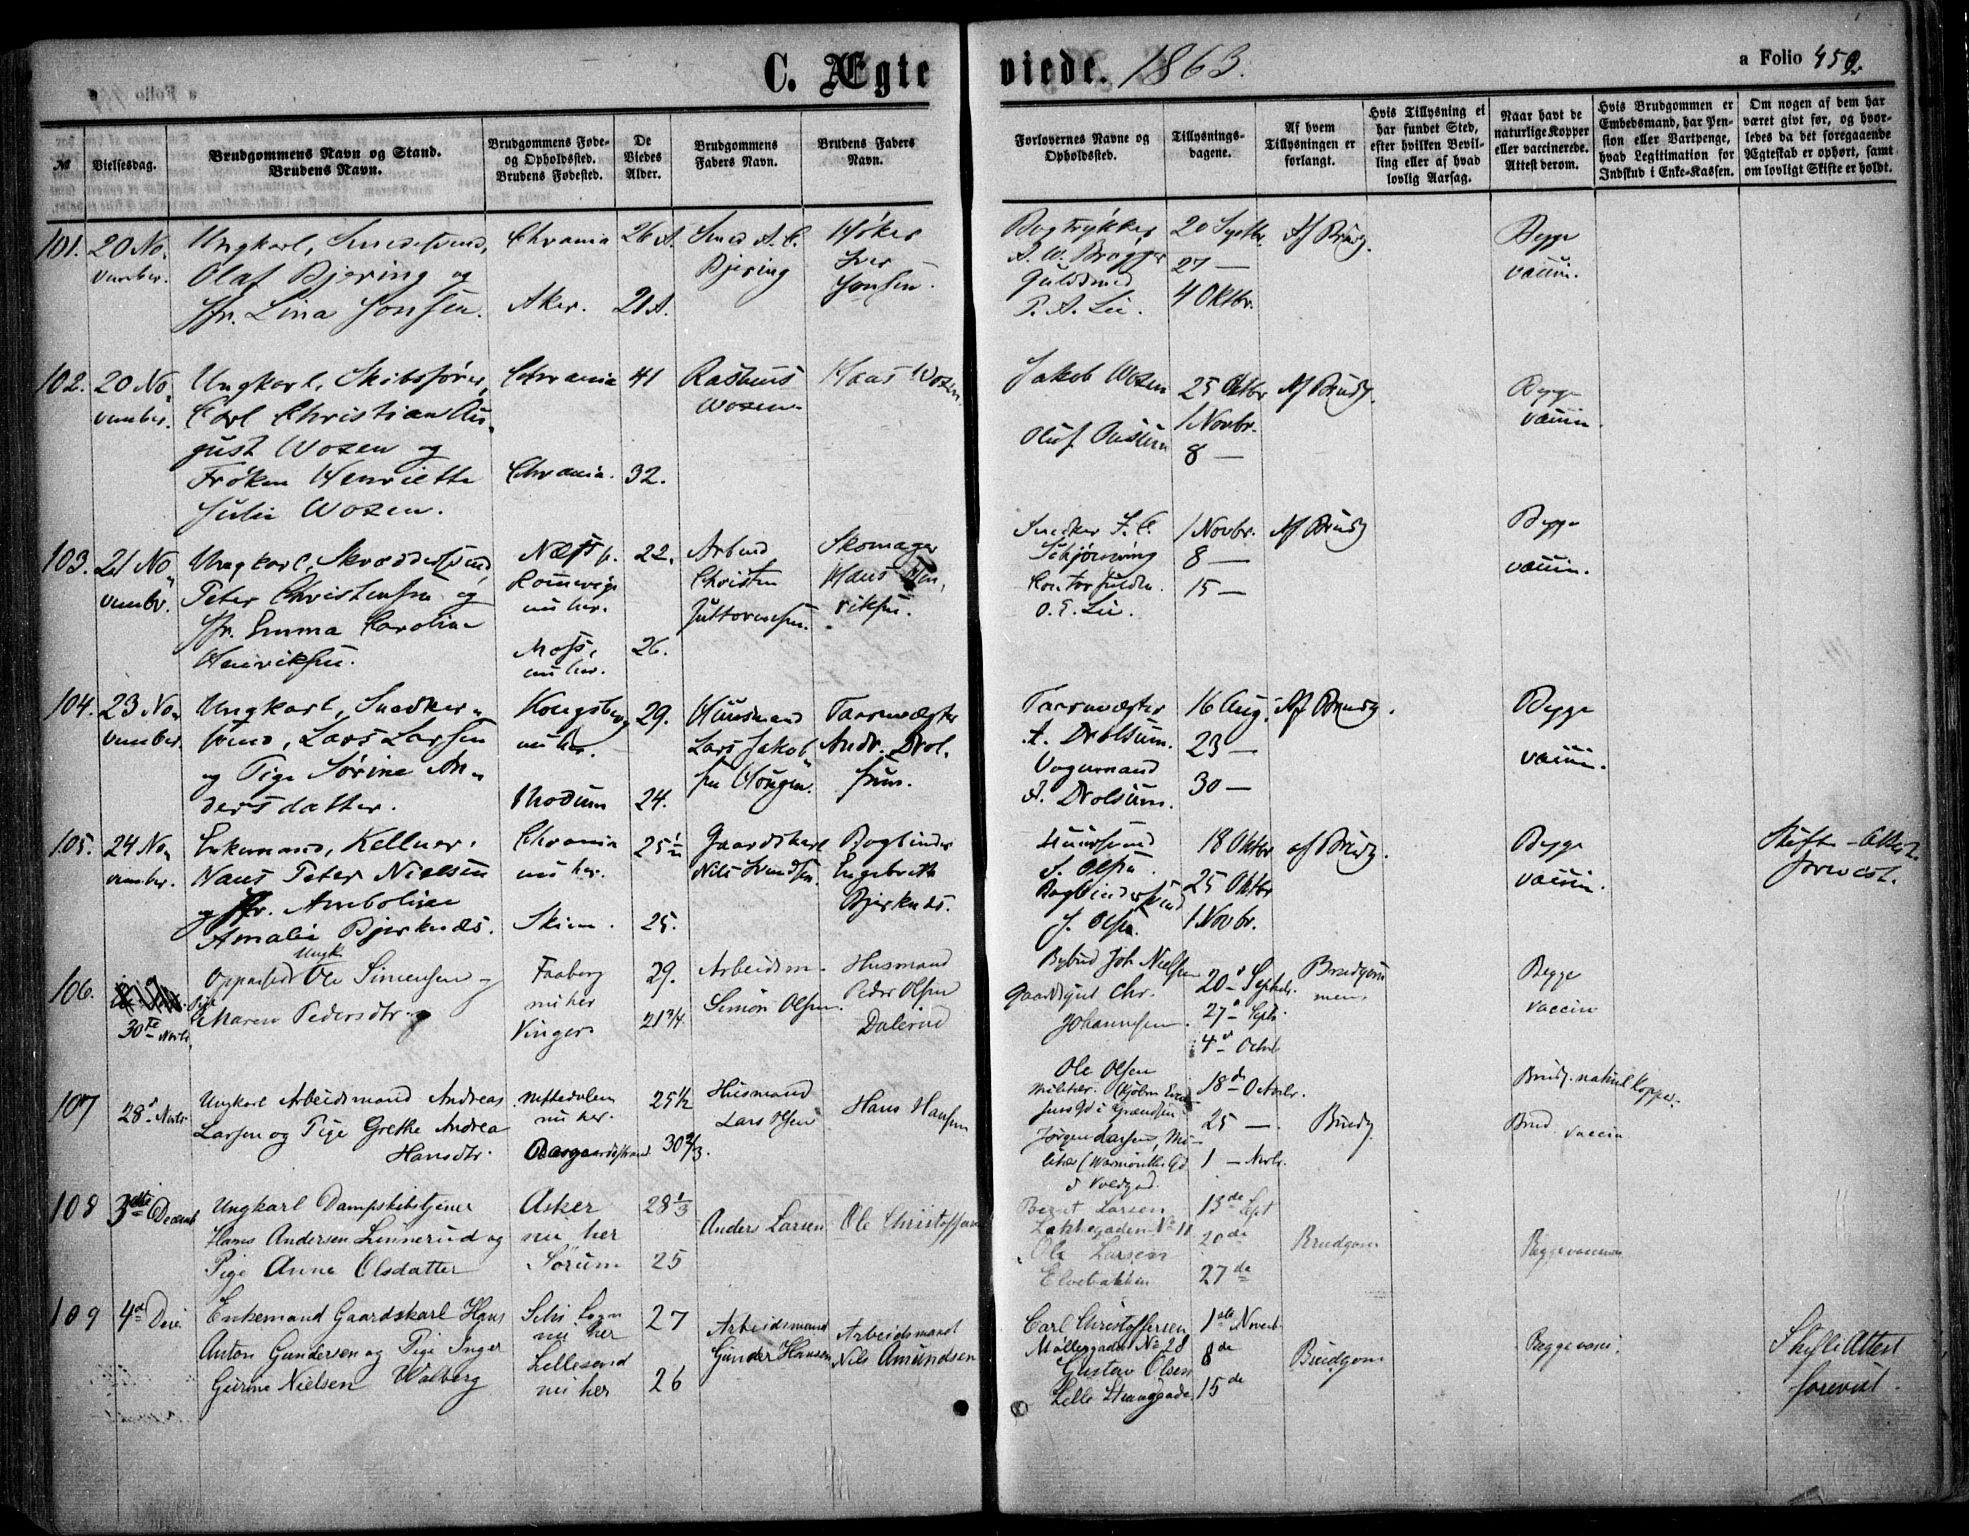 C. Ægteviede. 1863.
a Folio 459
№
Vielsesdag.
Brudgommens Navn og Stand.
Brudens Navn.
Brudgommens Føde-
og Opholdssted.
Brudens Fødested.
De
Viedes
Alder.
Brudgommens
Faders Navn.
Brudens Faders
Navn.
Forlovernes Navne og
Opholdssted.
Tillysnings-
dagene.
Af hvem
Tillysningen er
forlangt.
Hvis Tillysning ei
har fundet Sted,
efter hvilken Bevil-
ling eller af hvad
lovlig Aarsag.
Naar havt de
naturlige Kopper
eller vaccinerede.
Attest derom.
Hvis Brudgommen er
Embedsmand, har Pen-
sion eller Vartpenge,
hvad Legitimation for
Indskud i Enke-Kassen.
Om nogen af dem har
været givt før, og hvor-
ledes da det foregaaende
Ægteskab er ophørt, samt
om lovligt Skifte er holdt.
101.
20 No-
vember.
Ungkarl, Smedesvend,
Olaf Bjering og
Jfr. Lina Jonsen.
Chrania
Aker.
26 A.
21 A.
Smed A. C.
Bjering
Høker
Iver
Jonsen.
Bogtrykker
A. W. Brøgger
Guldsmed
P. A. Lie.
20 Septbr.
27 —
4 Oktbr.
Af Brudg.
Begge
vaccin.
102.
20 No-
vember.
Ungkarl, Skibsfører,
Carl Christian Au-
gust Wozen og
Frøken Henriette
Julie Wozen.
Chrania
Chrania.
41
32.
Rasmus
Wozen
Haas Wozen.
Jakob Wozen
Oluf
25 Oktbr
1 Novbr.
8 —
Af Brudg.
Begge
vaccin.
103.
21 No-
vembr.
Ungkarl, Skræddersvend
Peter Christensen og
Jfr. Emma Caroline
Henriksen.
Næss p.
nu her.
Moss,
nu her.
22.
26.
Arbeid
Christen
Guttormsen.
Skomager
Hans Hen-
riksen.
Snedker F. C.
O. E. Lie.
1 Novbr.
8 —
15 —
Af Brudg
Begge
vaccin.
104.
23 No-
vember.
Ungkarl, Snedker-
svend, Lars Larsen
og Pige Sørine An-
dersdatter.
Kongsberg
nu her.
Modum
29.
24.
Husmand
Lars Jakob-
sen Hougen.
Taarnvægter
Andr. Drol-
sum.
Taarnvægter
A. Drolsum.
Vognmand
A. Drolsum.
16 Aug.
23 —
30 —
Af Brudg.
Begge
vaccin.
105.
24 No-
vember.
Enkemand, Kellner,
Hans Peter Nielsen
og Jfr. Amboline
Amalie Bjerknæs.
Chrania
nu her.
Skien.
25½
25.
Gaardskarl
Nils Svendsen.
Bogbinder
Engebreth
Bjerknæs.
S. Olsen.
Bogbindersvend
J. Olsen.
18 Oktbr
25 Oktbr
1 Novbr.
af Brudg.
Begge
vaccin.
Skifte-Attest
forevist.
106.
30te Novbr.
Oppasser Ungk Ole Simensen og
Pige Maren Pedersdtr.
Faaberg
nu her
Vinger
29.
21¾
Arbeidsm.
Simon Olsen.
Husmand
Peder Olsen
Dalerud
Bybud Joh Nielsen
Gaardsgut Chr.
Johannesen.
20 d Septbr.
27 d Septb.
4 d Octbr
Brudgom-
men
Begge
vaccin
107
28d Novbr
Ungkarl Arbeidsmand Andreas
Larsen og Pige Grethe Andrea
Hansdtr.
Nittedalen
nu her.
Aasgaardsstrand
25½
30⅔.
Husmand
Lars Olsen
Hans Hansen
Ole Olsen
Jørgen Larsen, Mi-
18 de Octobr.
25 —.
1 — Novbr.
Brudg
Brudg. naturl Kopper.
Brud. vaccin
108
3die Decemb
Ungkarl Dampskibstjener
Hans Andersen Linnerud og
Pige Anne Olsdatter
Asker
nu her
Sørum
28⅓
25
Anders Larsen
Ole Christoffersen
Bernt Larsen
Lakkegaden No 11
Ole Larsen
Elvebakken
13de Sept
20de
27de
Brudgom
Begge vaccineret
109
4de Dece
Enkemand Gaardskarl Hans
Anton Gundersen og Pige Inger
Gurine Nielsen Walberg
nu her
Lillesand
nu her
27
26
Arbeidsmand
Gunder Hansen
Arbeidsmand
Nils Amundsen
Carl Christoffersen
Møllergaden No 28
Gustav Olsen
Lille Strandgade
1ste Novemb
8de
15de
Brudgom
Begge vacci.
Skifte Attest
forevist.